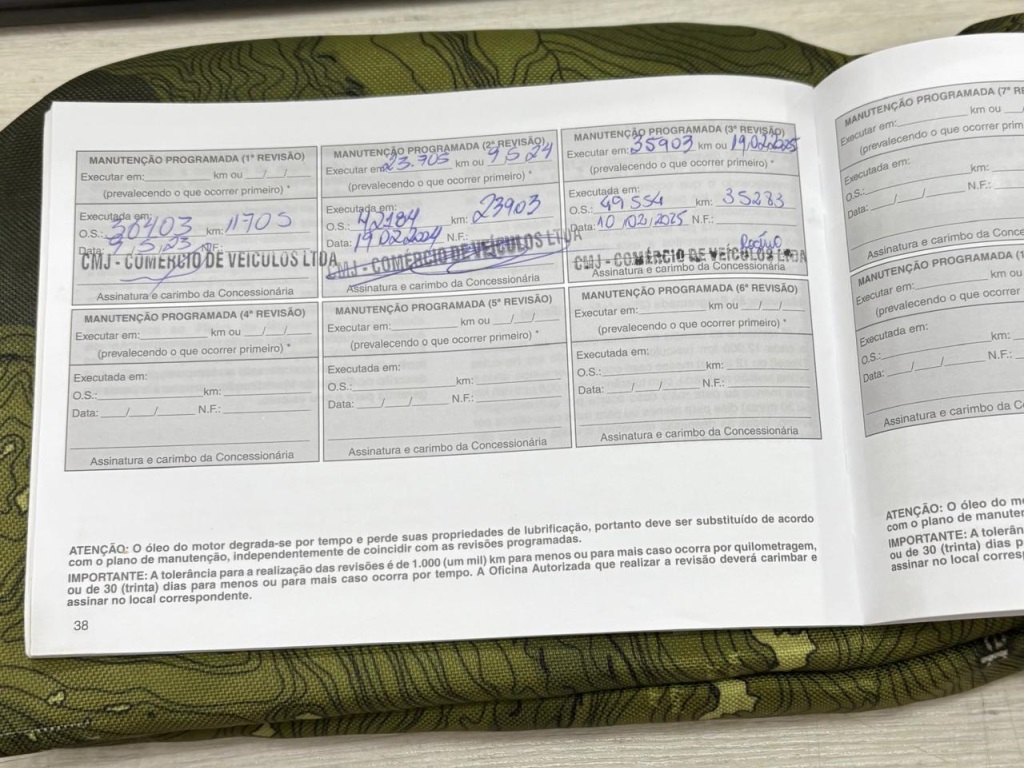 MANUTENÇÃO PROGRAMADA (1ª REVISÃO)
Executar em: km ou / /
(prevalecendo o que ocorrer primeiro) *
Executada em:
O.S.: 36403 km: 11705
Data: 9/5/23 N.F.:
CMJ - COMÉRCIO DE VEICULOS LTDA
Assinatura e carimbo da Concessionária
MANUTENÇÃO PROGRAMADA (2ª REVISÃO)
Executar em: 23.705 km ou 9 5 24
(prevalecendo o que ocorrer primeiro) *
Executada em:
O.S.: 42184 km: 23903
Data: 19 02 2024 N.F.:
CMJ - COMÉRCIO DE VEÍCULOS LTDA
Assinatura e carimbo da Concessionária
MANUTENÇÃO PROGRAMADA (3ª REVISÃO)
Executar em: 35903 km ou 19/02/2025
(prevalecendo o que ocorrer primeiro) *
Executada em:
O.S.: 49554 km: 35283
Data: 10/02/2025 N.F.:
CMJ - COMÉRCIO DE VEÍCULOS LTDA
Assinatura e carimbo da Concessionária
MANUTENÇÃO PROGRAMADA (4ª REVISÃO)
Executar em: km ou / /
(prevalecendo o que ocorrer primeiro) *
Executada em:
O.S.: km:
Data: / / N.F.:
Assinatura e carimbo da Concessionária
MANUTENÇÃO PROGRAMADA (5ª REVISÃO)
Executar em: km ou / /
(prevalecendo o que ocorrer primeiro) *
Executada em:
O.S.: km:
Data: / / N.F.:
Assinatura e carimbo da Concessionária
MANUTENÇÃO PROGRAMADA (6ª REVISÃO)
Executar em: km ou / /
(prevalecendo o que ocorrer primeiro) *
Executada em:
O.S.: km:
Data: / / N.F.:
Assinatura e carimbo da Concessionária
ATENÇÃO: O óleo do motor degrada-se por tempo e perde suas propriedades de lubrificação, portanto deve ser substituído de acordo
com o plano de manutenção, independentemente de coincidir com as revisões programadas.
IMPORTANTE: A tolerância para a realização das revisões é de 1.000 (um mil) km para menos ou para mais caso ocorra por quilometragem,
ou de 30 (trinta) dias para menos ou para mais caso ocorra por tempo. A Oficina Autorizada que realizar a revisão deverá carimbar e
assinar no local correspondente.
38
MANUTENÇÃO PROGRAMADA (7ª RE
Executar em: km ou /
(prevalecendo o que ocorrer prim
Executada em:
O.S.: km:
Data: / / N.F.:
Assinatura e carimbo da Conce
MANUTENÇÃO PROGRAMADA (1
Executar em: km ou
(prevalecendo o que ocorrer
Executada em:
O.S.: km:
Data: / / N.F.:
Assinatura e carimbo da C
ATENÇÃO: O óleo do m
com o plano de manuten
IMPORTANTE: A tolerân
ou de 30 (trinta) dias p
assinar no local corresp